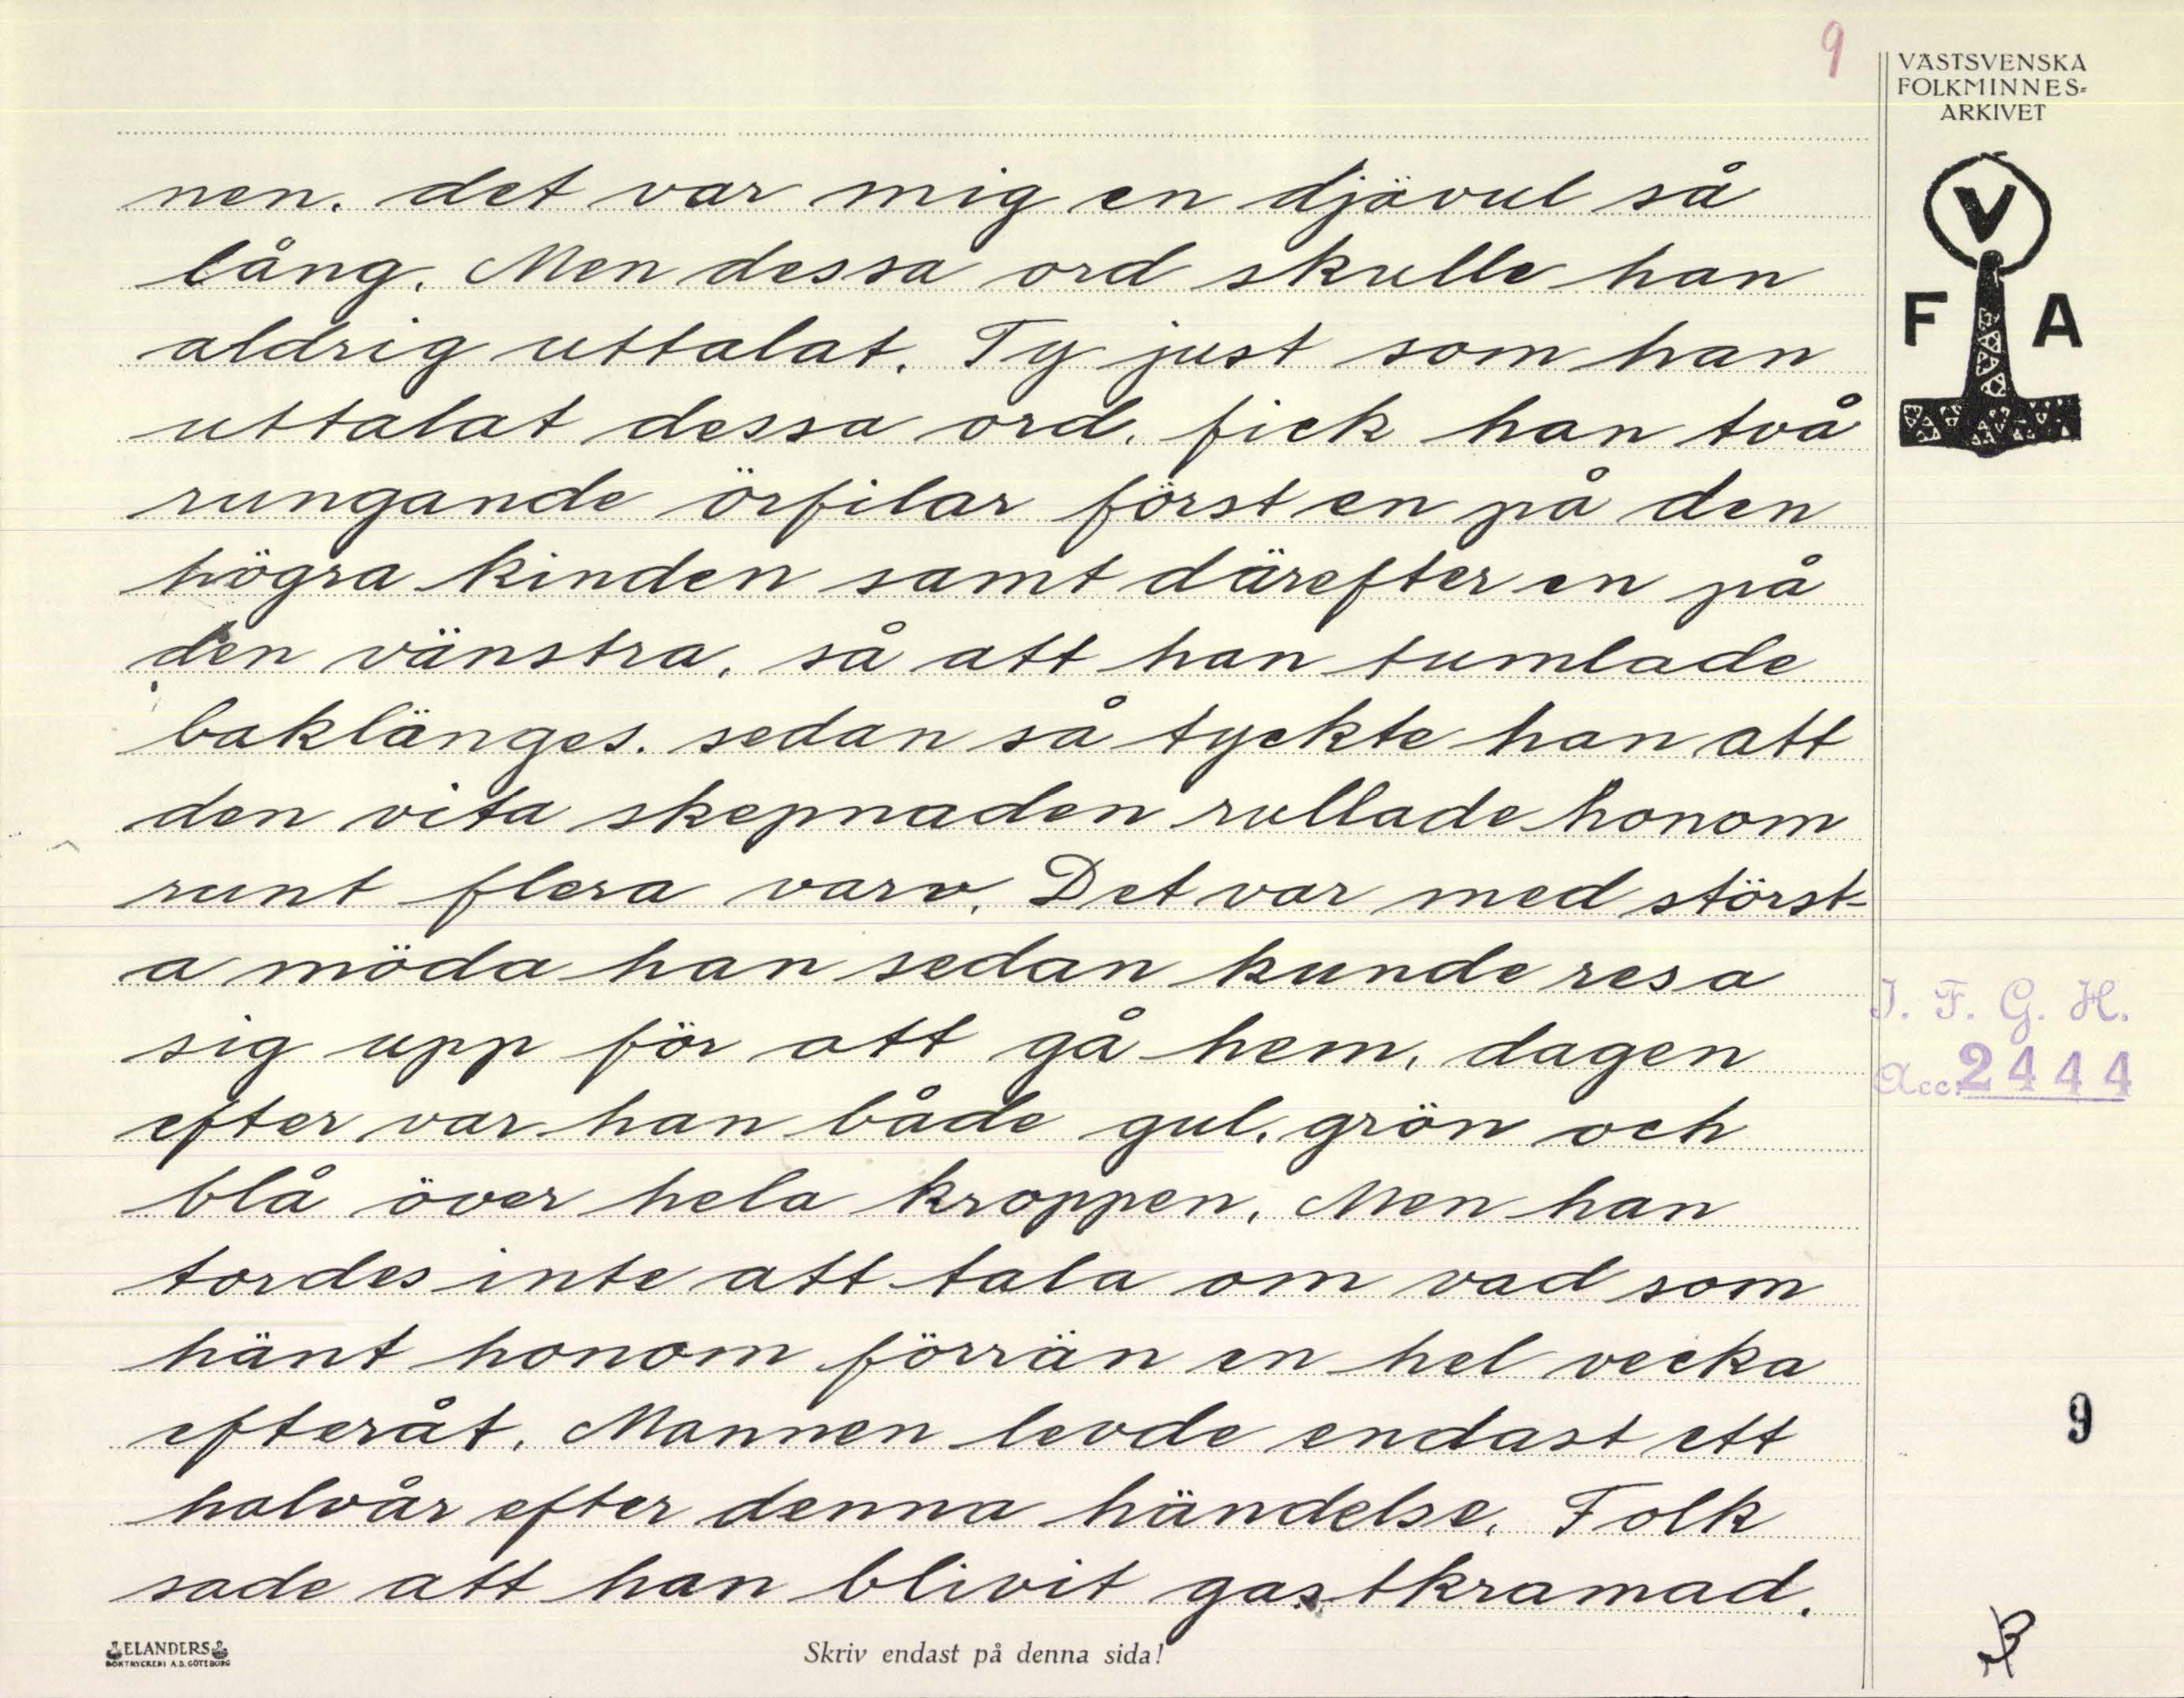 9
VÄSTSVENSKA
FOLKMINNES-
ARKIVET
V
F A
nen. det var mig en djävul så
lång. Men dessa ord skulle han
aldrig uttalat. Ty just som han
uttalat dessa ord, fick han två
rungande örfilar först en på den
högra kinden samt därefter en på
den vänstra, så att han tumlade
baklänges. sedan så tyckte han att
den vita skepnaden rullade honom
runt flera varv. Det var med störst-
a möda han sedan kunde resa
sig upp för att gå hem, dagen
efter var han både gul, grön och
blå över hela kroppen, Men han
tordes inte att tala om vad som
hänt honom förrän en hel vecka
efteråt. Mannen levde endast ett
halvår efter denna händelse. Folk
sade att han blivit gastkramad.
I. F. G. H.
Acc. 2444
9
ELANDERS
BOKTRYCKERI A.B. GÖTEBORG
Skriv endast på denna sida!